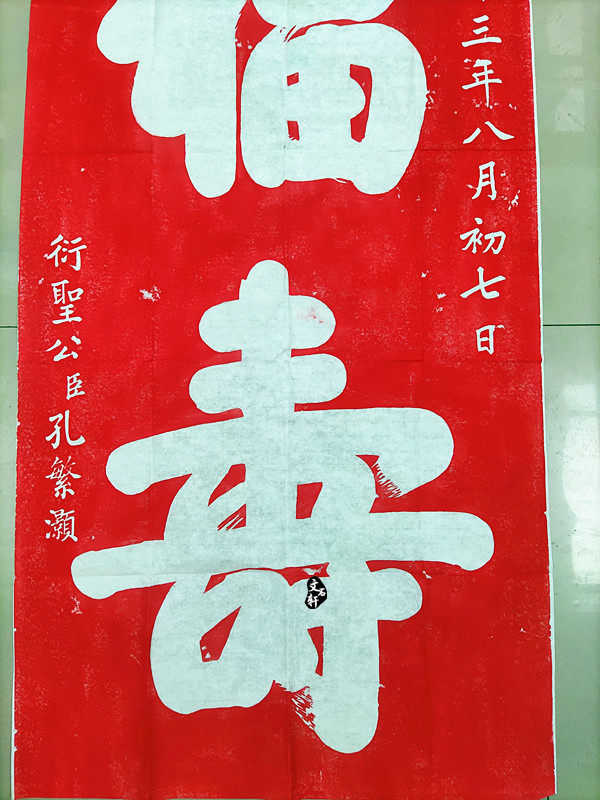 三年八月初七日
福
壽
衍聖公臣孔繁灝
文石軒